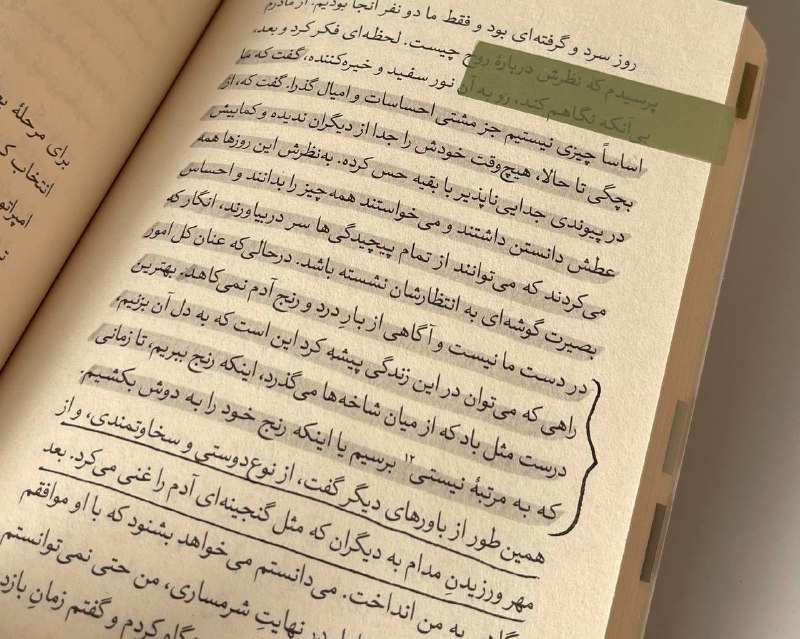 روز سرد و گرفته‌ای بود و فقط ما دو نفر آنجا بودیم. از مادرم
پرسیدم که نظرش دربارهٔ روح چیست. لحظه‌ای فکر کرد و بعد،
بی‌آنکه نگاهم کند، رو به آن نور سفید و خیره‌کننده، گفت که ما
اساساً چیزی نیستیم جز مشتی احساسات و امیال گذرا. گفت که، از
بچگی تا حالا، هیچ‌وقت خودش را جدا از دیگران ندیده و کمابیش
در پیوندی جدایی‌ناپذیر با بقیه حس کرده. به‌نظرش این روزها همه
عطش دانستن داشتند و می‌خواستند همه‌چیز را بدانند و احساس
می‌کردند که می‌توانند از تمام پیچیدگی‌ها سر دربیاورند، انگار که
بصیرت گوشه‌ای به انتظارشان نشسته باشد. درحالی‌که عنان کل امور
در دست ما نیست و آگاهی از بارِ درد و رنج آدم نمی‌کاهد. بهترین
راهی که می‌توان در این زندگی پیشه کرد این است که به دل آن بزنیم،
درست مثل باد که از میان شاخه‌ها می‌گذرد، اینکه رنج ببریم، تا زمانی
که به مرتبهٔ نیستی۱۲ برسیم یا اینکه رنج خود را به دوش بکشیم.
همین‌طور از باورهای دیگر گفت، از نوع‌دوستی و سخاوتمندی، و از
مهر ورزیدنِ مدام به دیگران که مثل گنجینه‌ای آدم را غنی می‌کرد. بعد
به من انداخت. می‌دانستم می‌خواهد بشنود که با او موافقم
در نهایتِ شرمساری، من حتی نمی‌توانستم
کردم و گفتم زمانِ
برای مرحلهٔ
انتخاب